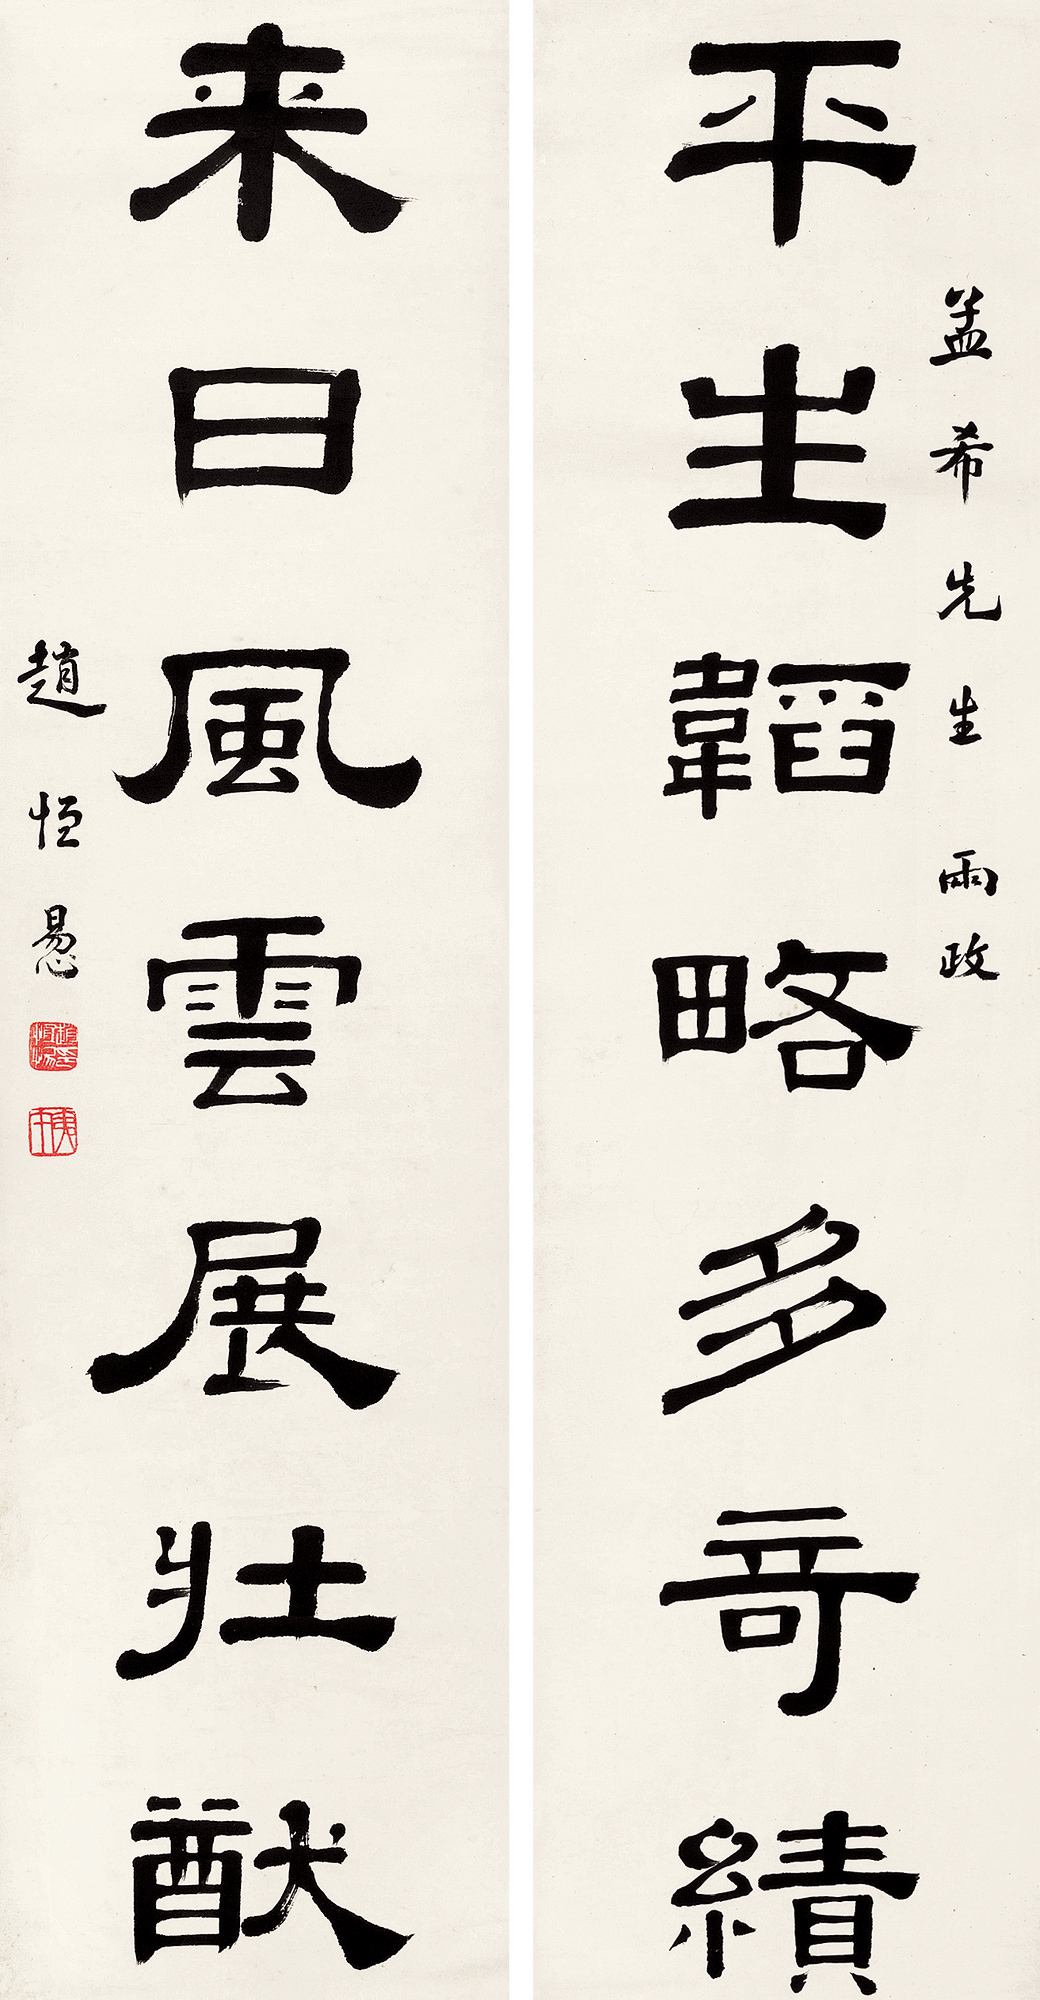 盖希先生兩政
平生韜略多奇績
来日風雲展壯猷
趙恒惖
夷午